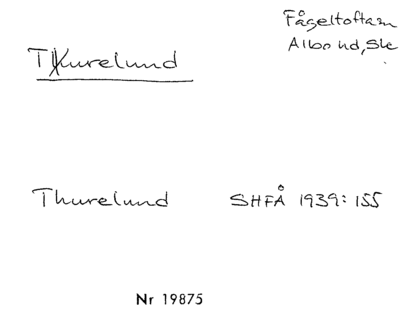 Fågeltofta sn
Albo hd, Sk
Thurelund
Thurelund SHFÅ 1939: 155
Nr 19875